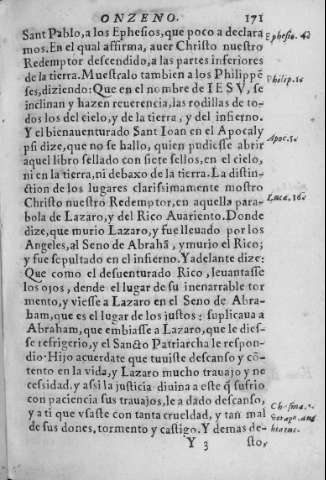 ONZENO. 171
Sant Pablo, a los Ephesios, que poco a declara
mos. En el qual affirma, auer Christo nuestro
Redemptor descendido, a las partes inferiores
de la tierra. Muestralo tambien a los Philippē
ses, diziendo: Que en el nombre de IESV, se
inclinan y hazen reuerencia, las rodillas de to-
dos los del cielo, y de la tierra, y del infierno.
Y el bienauenturado Sant Ioan en el Apocaly
psi dize, que no se hallo, quien pudiesse abrir
aquel libro sellado con siete sellos, en el cielo,
ni en la tierra, ni debaxo de la tierra. La distin-
ction de los lugares clarissimamente mostro
Christo nuestro Redemptor, en aquella para-
bola de Lazaro, y del Rico Auariento. Donde
dize, que murio Lazaro, y fue lleuado por los
Angeles, al Seno de Abrahā, y murio el Rico;
y fue sepultado en el infierno. Y adelante dize:
Que como el desuenturado Rico, leuantasse
los ojos, dende el lugar de su inenarrable tor
mento, y viesse a Lazaro en el Seno de Abra-
ham, que es el lugar de los justos: suplicaua a
Abraham, que embiasse a Lazaro, que le dies-
se refrigerio, y el Sancto Patriarcha le respon-
dio. Hijo acuerdate que tuuiste descanso y cō-
tento en la vida, y Lazaro mucho trauajo y ne
cessidad. y assi la justicia diuina a este q̄ sufrio
con paciencia sus trauajos, le a dado descanso,
y a ti que vsaste con tanta crueldad, y tan mal
de sus dones, tormento y castigo. Y demas de-
Y 3 sto,
Ephesio. 4.
Philip. 2.
Apoc. 5.
Luca. 16.